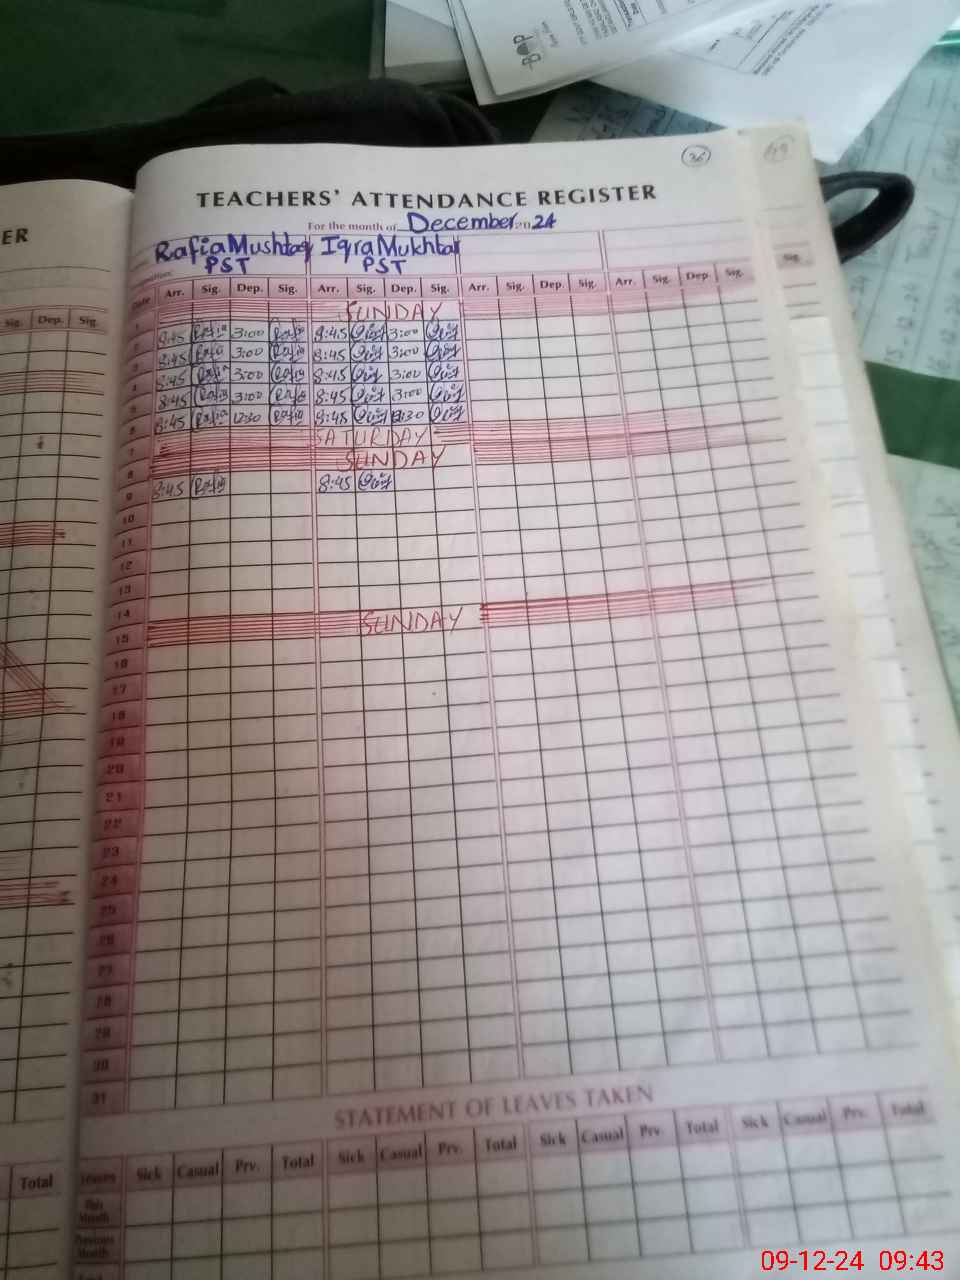 BOP
36
49
TEACHERS' ATTENDANCE REGISTER
ER
For the month of December 2024
Rafia Mushtaq Iqra Mukhtar
PST PST
Sig.
Date Arr. Sig. Dep. Sig. Arr. Sig. Dep. Sig. Arr. Sig. Dep. Sig. Arr. Sig. Dep. Sig.
Sig. Dep. Sig.
1 SUNDAY
2 8:45 Rafia 3:00 Rafia 8:45 3:00
3 8:45 Rafia 3:00 Rafia 8:45 3:00
4 8:45 Rafia 3:00 Rafia 8:45 3:00
5 8:45 Rafia 3:00 Rafia 8:45 3:00
6 8:45 Rafia 12:30 Rafia 8:45 12:30
7 SATURDAY
8 SUNDAY
9 8:45 Rafia 8:45
10
11
12
13
14
15 SUNDAY
16
17
18
19
20
21
22
23
24
25
26
27
28
29
30
31
STATEMENT OF LEAVES TAKEN
Total
Leaves Sick Casual Prv. Total Sick Casual Prv. Total Sick Casual Prv. Total Sick Casual Prv. Total
This
Month
Previous
Month
09-12-24 09:43